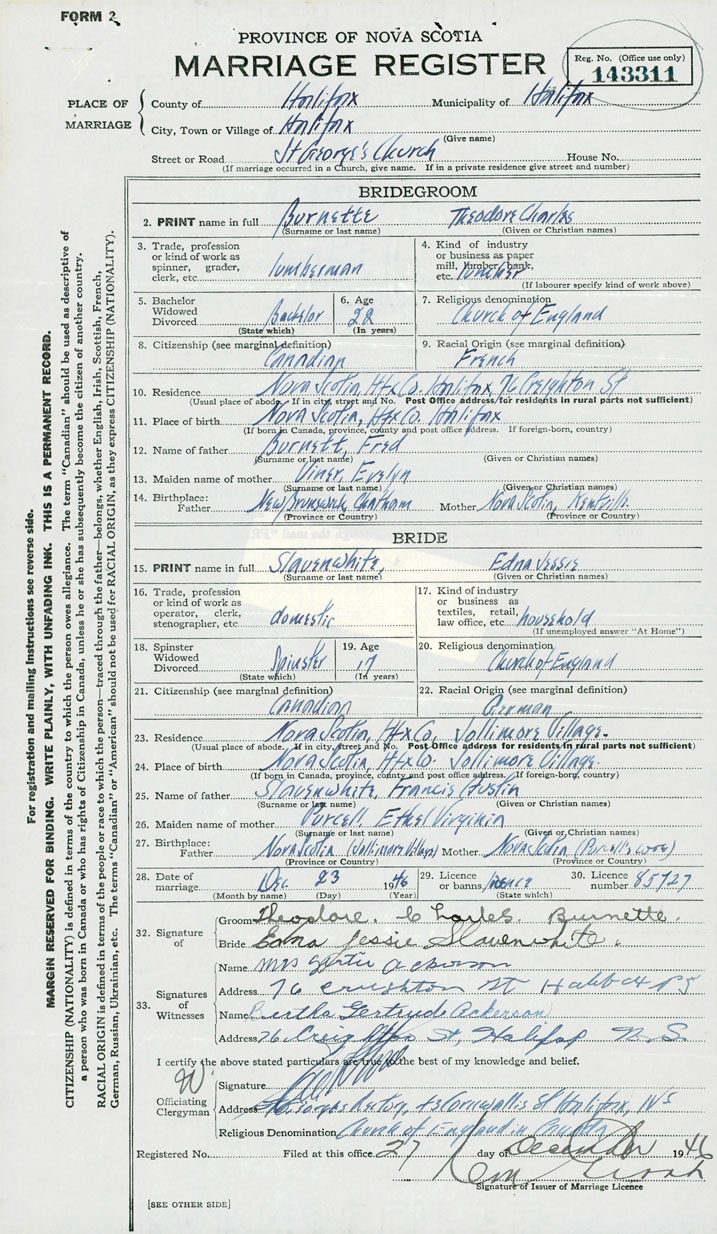 FORM 2
PROVINCE OF NOVA SCOTIA
MARRIAGE REGISTER
Reg. No. (Office use only)
143311
PLACE OF MARRIAGE
County of Halifax Municipality of Halifax
City, Town or Village of Halifax
(Give name)
Street or Road St George's Church House No.
(If marriage occurred in a Church, give name. If in a private residence give street and number)
BRIDEGROOM
2. PRINT name in full Burnette Theodore Charles
(Surname or last name) (Given or Christian names)
3. Trade, profession or kind of work as spinner, grader, clerk, etc. lumberman
4. Kind of industry or business as paper mill, lumber, bank, etc. lumber
(If labourer specify kind of work above)
5. Bachelor Widowed Divorced Bachelor
(State which)
6. Age 22
(In years)
7. Religious denomination
Church of England
8. Citizenship (see marginal definition)
Canadian
9. Racial Origin (see marginal definition)
French
10. Residence Nova Scotia, Hfx Co. Halifax, 76 Creighton St
(Usual place of abode. If in city, street and No. Post Office address for residents in rural parts not sufficient)
11. Place of birth Nova Scotia, Hfx Co. Halifax
(If born in Canada, province, county and post office address. If foreign-born, country)
12. Name of father Burnett, Fred
(Surname or last name) (Given or Christian names)
13. Maiden name of mother Viner, Evelyn
(Surname or last name) (Given or Christian names)
14. Birthplace: Father New Brunswick, Chatham Mother Nova Scotia, Kentville
(Province or Country) (Province or Country)
BRIDE
15. PRINT name in full Slavenwhite, Edna Jessie
(Surname or last name) (Given or Christian names)
16. Trade, profession or kind of work as operator, clerk, stenographer, etc. domestic
17. Kind of industry or business as textiles, retail, law office, etc. household
(If unemployed answer "At Home")
18. Spinster Widowed Divorced Spinster
(State which)
19. Age 17
(In years)
20. Religious denomination
Church of England
21. Citizenship (see marginal definition)
Canadian
22. Racial Origin (see marginal definition)
German
23. Residence Nova Scotia, Hfx Co, Jollimore Village.
(Usual place of abode. If in city, street and No. Post Office address for residents in rural parts not sufficient)
24. Place of birth Nova Scotia, Hfx Co. Jollimore Village.
(If born in Canada, province, county and post office address. If foreign-born, country)
25. Name of father Slavenwhite, Francis
(Surname or last name) (Given or Christian names)
26. Maiden name of mother Purcell, Ethel Virginia
(Surname or last name) (Given or Christian names)
27. Birthplace: Father Nova Scotia (Jollimore Village) Mother Nova Scotia (Purcell's Cove)
(Province or Country) (Province or Country)
28. Date of marriage Dec 23 1946
(Month by name) (Day) (Year)
29. Licence or banns licence
(State which)
30. Licence number 85727
32. Signature of
Groom Theodore. Charles. Burnette.
Bride Edna Jessie Slavenwhite.
33. Signatures of Witnesses
Name Mrs Ackerson
Address 76 St
Name Bertha Gertrude Ackerson
Address 76 Creighton St, Halifax N.S.
I certify the above stated particulars are true to the best of my knowledge and belief.
Officiating Clergyman
Signature
Address St Georges Rectory, 43 Cornwallis St Halifax, NS
Religious Denomination Church of England in Canada
Registered No. Filed at this office 27 day of December 1946
Signature of Issuer of Marriage Licence
[SEE OTHER SIDE]
For registration and mailing instructions see reverse side.
MARGIN RESERVED FOR BINDING. WRITE PLAINLY, WITH UNFADING INK. THIS IS A PERMANENT RECORD.
CITIZENSHIP (NATIONALITY) is defined in terms of the country to which the person owes allegiance. The term "Canadian" should be used as descriptive of
a person who was born in Canada or who has rights of Citizenship in Canada, unless he or she has subsequently become the citizen of another country.
RACIAL ORIGIN is defined in terms of the people or race to which the person—traced through the father—belongs, whether English, Irish, Scottish, French,
German, Russian, Ukrainian, etc. The terms "Canadian" or "American" should not be used for RACIAL ORIGIN, as they express CITIZENSHIP (NATIONALITY).